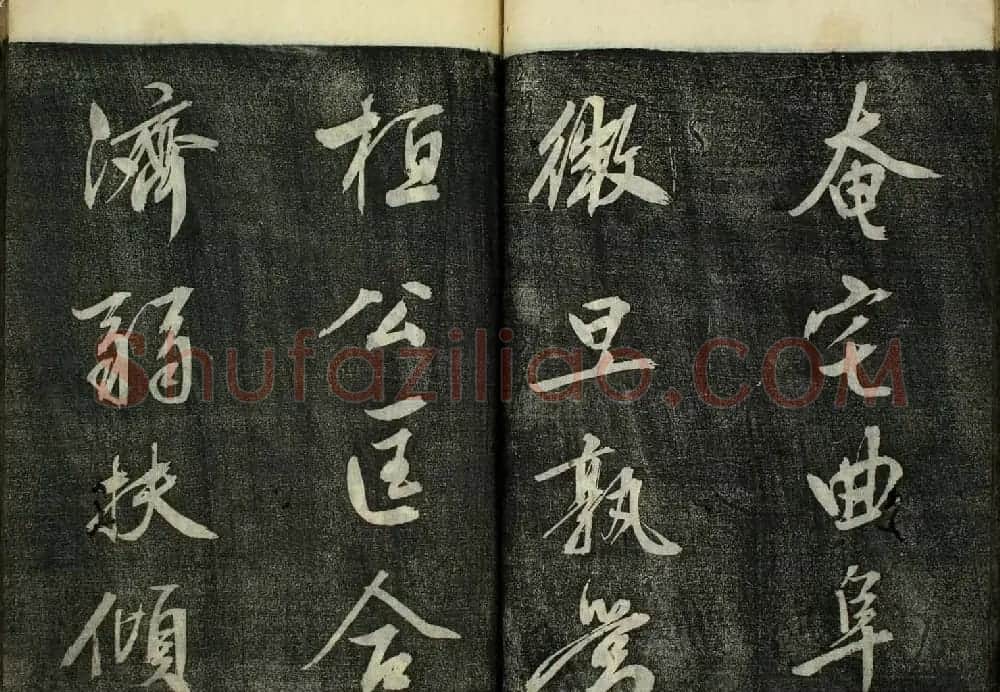 奄宅曲阜
微旦孰營
桓公匡合
濟弱扶傾
Shufaziliao.COM